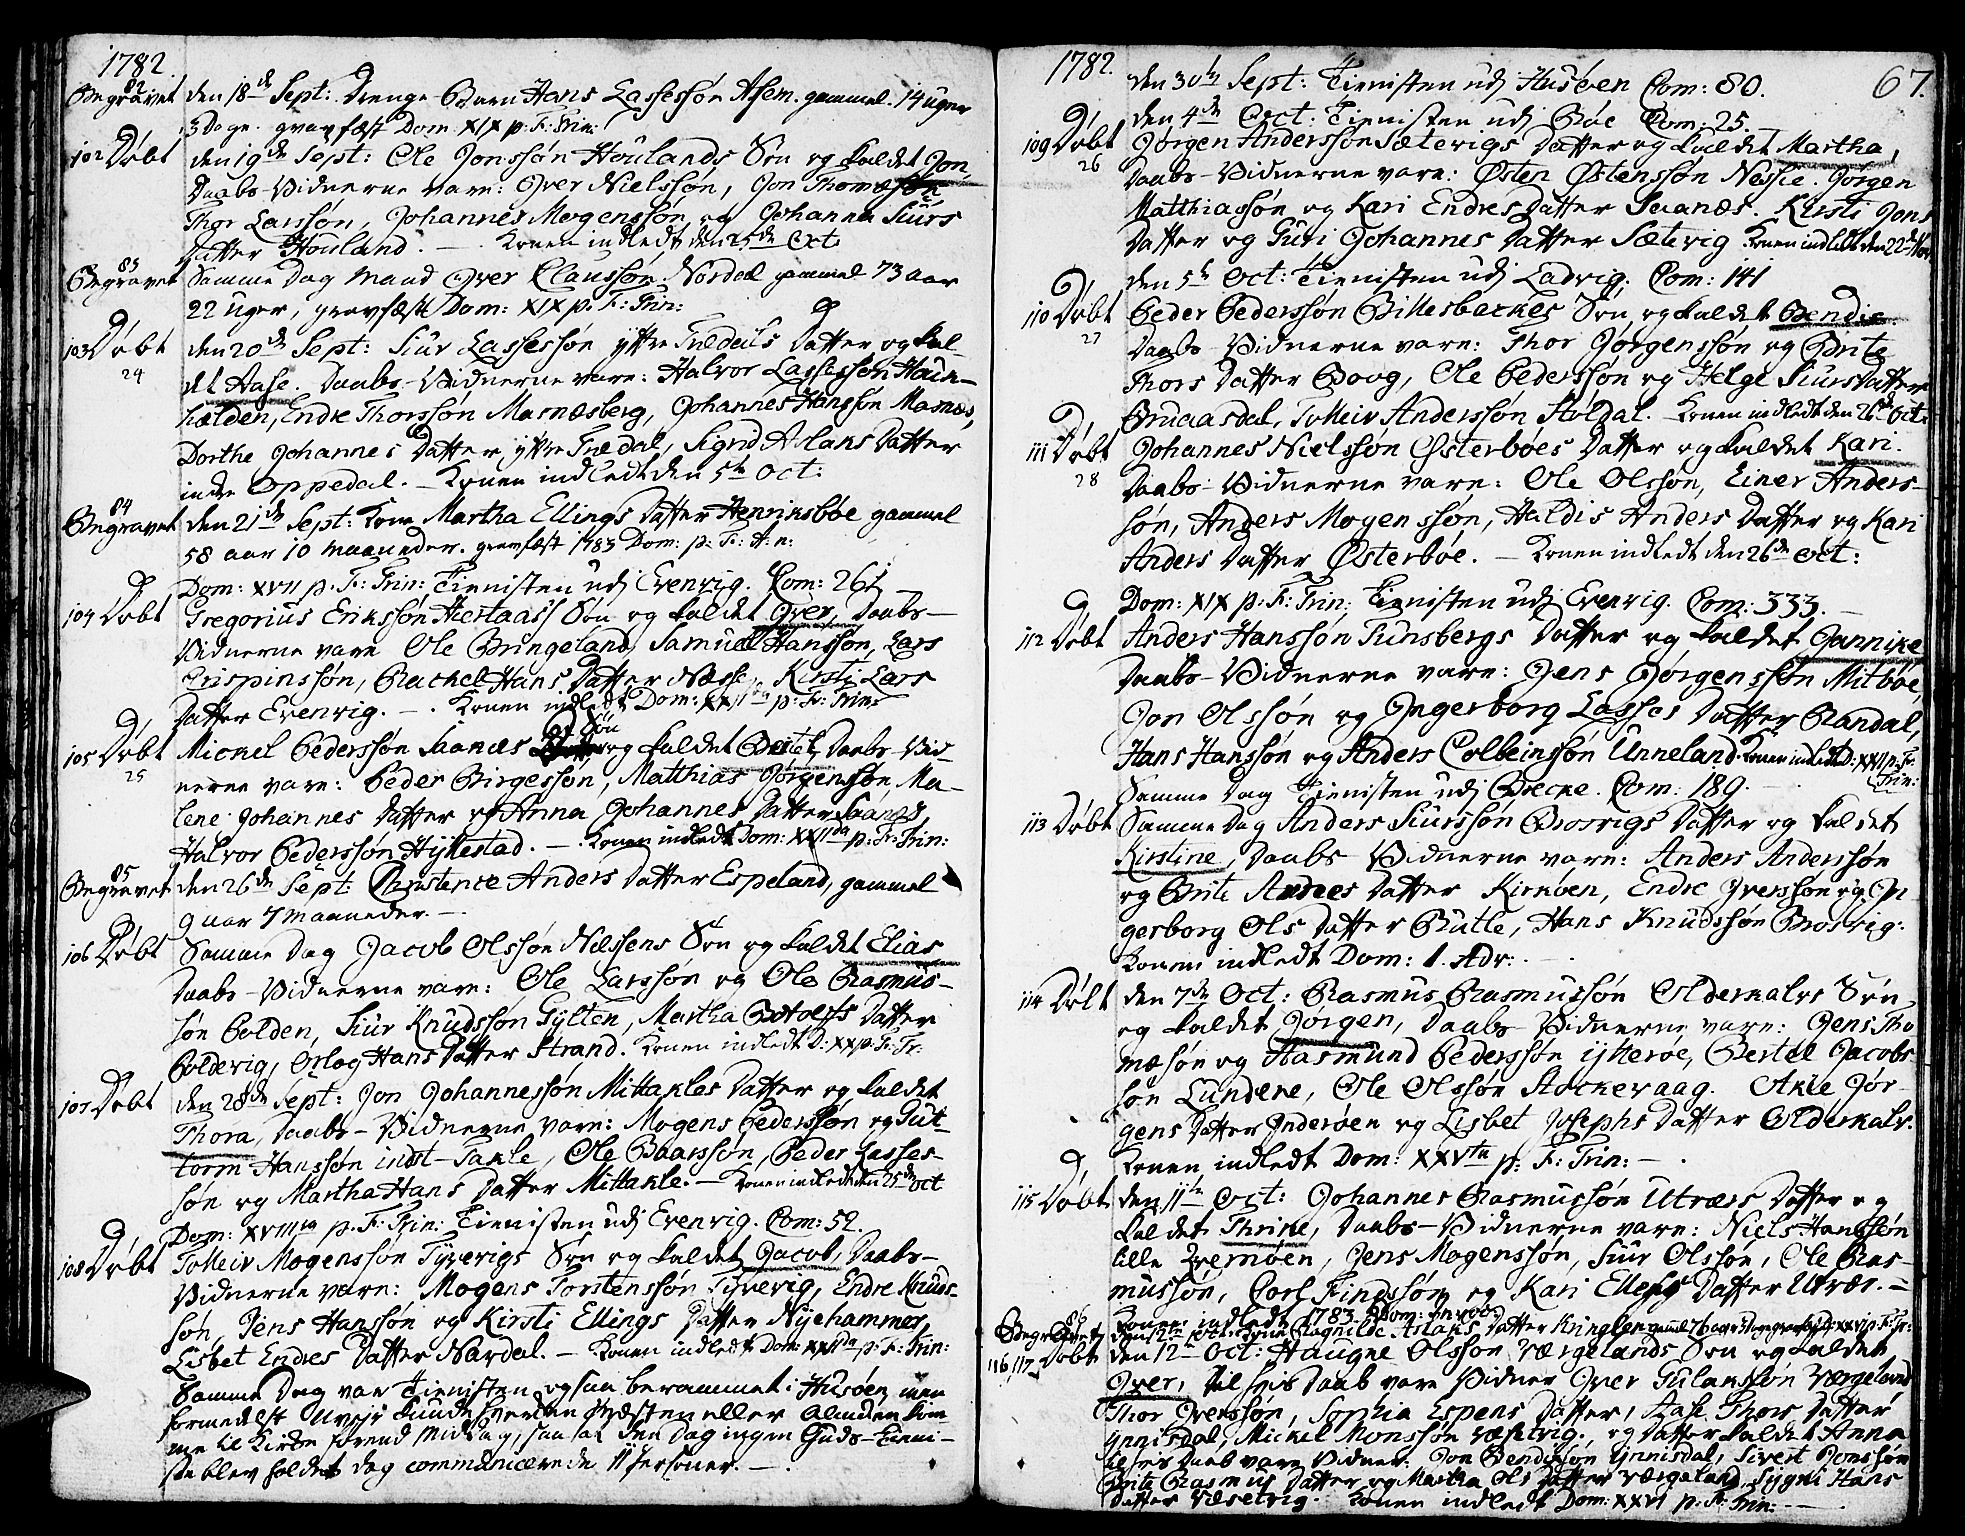 1782.
82 Begravet den 18de Sept: Drenge-Barn Hans Lassessøn Asem. gammel. 14 uger
3 Dage. gravfæst Dom: XIX p: F: Trin:
102 Døbt den 19de Sept: Ole Jonssøn Houlands Søn og kaldet Jon,
Daabs-Vidnerne vare: Iver Nielssøn, Jon Thomæsøn
Thor Larssøn, Johannes Mogenssøn og Johanna Siurs
Datter Houland. — Konen indledt den 25de Oct:
83 Begravet Samme Dag Mand Iver Claussøn Nordal gammel 73 aar
22 uger, gravfæstt Dom: XIX p: F: Trin:
103 Døbt den 20de Sept: Siur Lassessøn yttre Tredals Datter og kal-
24 det Aase. Daabs-Vidnerne vare: Halvor Lassessøn
hælden, Endre Thorssøn Masnæsberg, Johannes Hanssøn Masnæs,
Dorthe Johannes Datter yttre Tredal, Sigrid Aslaks Datter
indre Oppedal. — Konen indledt den 5te Oct:
84 Begravet den 21de Sept: Kone Martha Ellings Datter Henriksbøe gammel
58 aar 10 maaneder. gravfæst 1783 Dom: p: F: A: n:
Dom: XVII p: F: Trin: Tienisten udj Evenvig. Com: 261
104 Døbt Gregorius Erikssøn Hiertaass Søn og kaldet Iver, Daabs-
Vidnerne vare Ole Bringeland, Samuel Hanssøn, Lars
Crispinssøn, Rachel Hans Datter Næsse, Kirsti Lars
Datter Evenvig. — Konen indledt Dom: XXII p: F: Trin:
105 Døbt Mickel Pederssøn Saanæs Søn og kaldet Bertel, Daabs-Vid-
25 nerne vare: Peder Birgessøn, Matthias Jørgenssøn, Ma-
lene Johannes Datter og Anna Johannes Datter Saanæs,
Halvor Pederssøn Hyllestad. — Konen indledt Dom: XXIIda p: F: Trin:
85 Begravet den 26de Sept: Christence Anders Datter Espeland, gammel
9 aar 7 maaneder. —
106 Døbt Samme Dag Jacob Olssøn Næssens Søn og kaldet Elias
Daabs-Vidnerne vare: Ole Larssøn og Ole Rasmus-
søn Polden, Siur Knudssøn Gylten, Martha Datter
Poldevig, Orlog Hans Datter Strand. Konen indledt D: XX p: F: Tr:
107 Døbt den 28de Sept: Jon Johannessøn Mittakles Datter og kaldet
Thora, Daabs-Vidnerne vare: Mogens Pederssøn og Gut-
torm Hanssøn indst-Takle, Ole Baarssøn, Peder Lasses-
søn og Martha Hans Datter Mittakle. — Konen indledt den 25de Oct
Dom: XVIIIta p: F: Trin: Tienisten udj Evenvig. Com: 52.
108 Døbt Tolleiv Mogenssøn Tyverigs Søn og kaldet Jacob, Daabs-
Vidnerne vare: Mogens Torstenssøn Tyvevig, Endre Knuds-
søn, Jens Hanssøn og Kirsti Ellings Datter Nyehammer,
Lisbet Endres Datter Nardal. — Konen indledt Dom: XXIIda p: F: Trin:
Samme Dag var Tienisten ogsaa berammet i Husøen, men
formedelst Uvejr kunde hverken Præsten eller Almuen kom-
me til Kirke førend Middag, saa at den Dag ingen Guds-Tieni-
ste blev holdet dog communicerede 11 Personer. —
1782. 67.
den 30te Sept: Tienisten udj Husøen Com: 80.
den 4de Oct: Tienisten udj Bøe Com: 25.
109 Døbt Jørgen Anderssøn Sætevigs Datter og kaldet Martha,
26 Daabs-Vidnerne vare: Østen Østenssøn Nessie. Jørgen
Matthiassøn og Kari Endres Datter Saanæs. Kirsti Jons
Datter og Guri Johannes Datter Sætevig Konen indledt den 22de Nov
den 5te Oct: Tienisten udj Ladvig. Com: 141
110 Døbt Peder Pederssøn Billesbackes Søn og kaldet Bendix
27 Daabs-Vidnerne vare: Thor Jørgenssøn og Brite
Thors Datter Boug, Ole Pederssøn og Helge Siurs Datter
Bruaasdal, Tolleiv Anderssøn Støldal. Konen indledt den 26de Oct:
111 Døbt Johannes Nielssøn Østerbøes Datter og kaldet Kari.
28 Daabs-Vidnerne vare: Ole Olssøn, Einer Anders-
søn, Anders Mogenssøn, Haldis Anders Datter og Kari
Anders Datter Østerbøe. — Konen indledt den 26de Oct:
Dom: XIX p: F: Trin: Tienisten udj Evenvig. Com: 333. —
112 Døbt Anders Hanssøn Tunsbergs Datter og kaldet Jannike
Daabs-Vidnerne vare: Jens Jørgenssøn Mitbøe,
Jon Olssøn og Ingerborg Lasses Datter Randal,
Hans Hanssøn og Anders Colbeinssøn Unneland. Konen indledt D: XXII p: F:
Trin:
Samme Dag Tienisten udj Brecke. Com: 189.
113 Døbt Samme Dag Anders Siurssøn Brosvigs Datter og kaldet
Kirstine, Daabs-Vidnerne vare: Anders Anderssøn
og Brite Andres Datter Kirkøen, Endre Iverssøn og In
gerborg Ols Datter Rutle, Hans Knudssøn Brosvig:
Konen indledt Dom: 1. Adv: —
114 Døbt den 7de Oct: Rasmus Rasmussøn Olderkalvs Søn
og kaldet Jørgen, Daabs-Vidnerne vare: Jens Tho
mæsøn og Aasmund Pederssøn ytterøe, Bertel Jacobs
søn Lundene, Ole Olssøn Stockevaag. Anne Jør-
gens Datter Inderøen og Lisbet Josephs Datter Olderkalv.
Konen indledt Dom: XXVta p: F: Trin: —
115 Døbt den 11te Oct: Johannes Rasmussøn Utværs Datter og
kaldet Thrine, Daabs-Vidnerne vare: Niels Hanssøn
lille Qvernøen, Jens Mogenssøn, Siur Olssøn, Ole Ras-
mussøn, Carl Findssøn og Kari Ellens Datter Utvær. —
Konen indledt 1783. Dom:
86 Begravet den 12te Ragnilde Aslaks Datter Kringlen gammel 76 aar
116, 117 Døbt den 12te Oct: Haugne Olssøn Værgelands Søn og kaldet
Iver, til hvis Daab vare Vidner Iver Gulakssøn Værgeland
Thor Iverssøn, Sophia Espens Datter, Aase Thors Datter
Ynnisdal, Mickel Monssøn Væsetvig. og Datter kaldet Anna
Daab vare Vidner: Jon Bendixsøn Ynnisdal, Sivert Jonssøn
Brite Rasmus Datter og Martha Ols Datter Værgeland, Sygni Hans
Datter Væsetvig. Konen indledt Dom: XXVI p: F: Trin: —